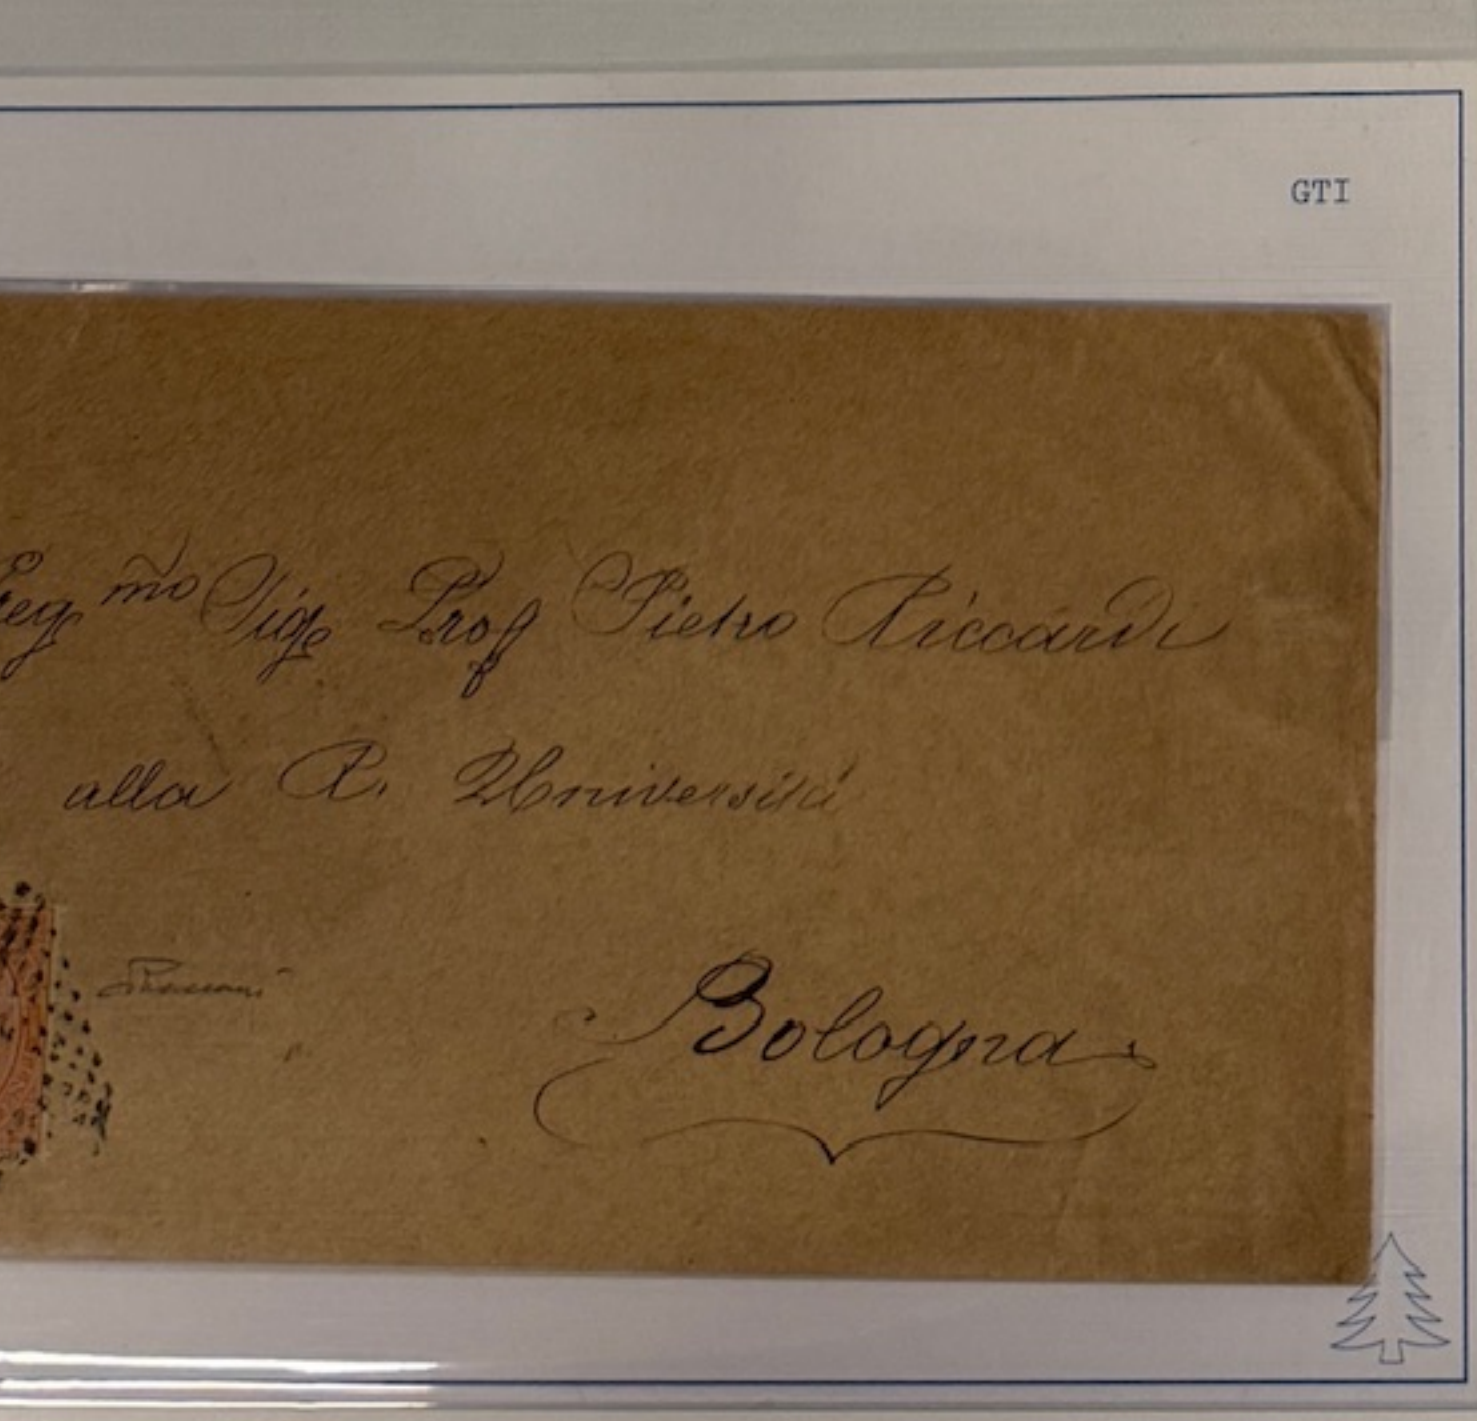 GTI
Egmo Sig. Prof Pietro Riccardi
alla R. Università
Bologna